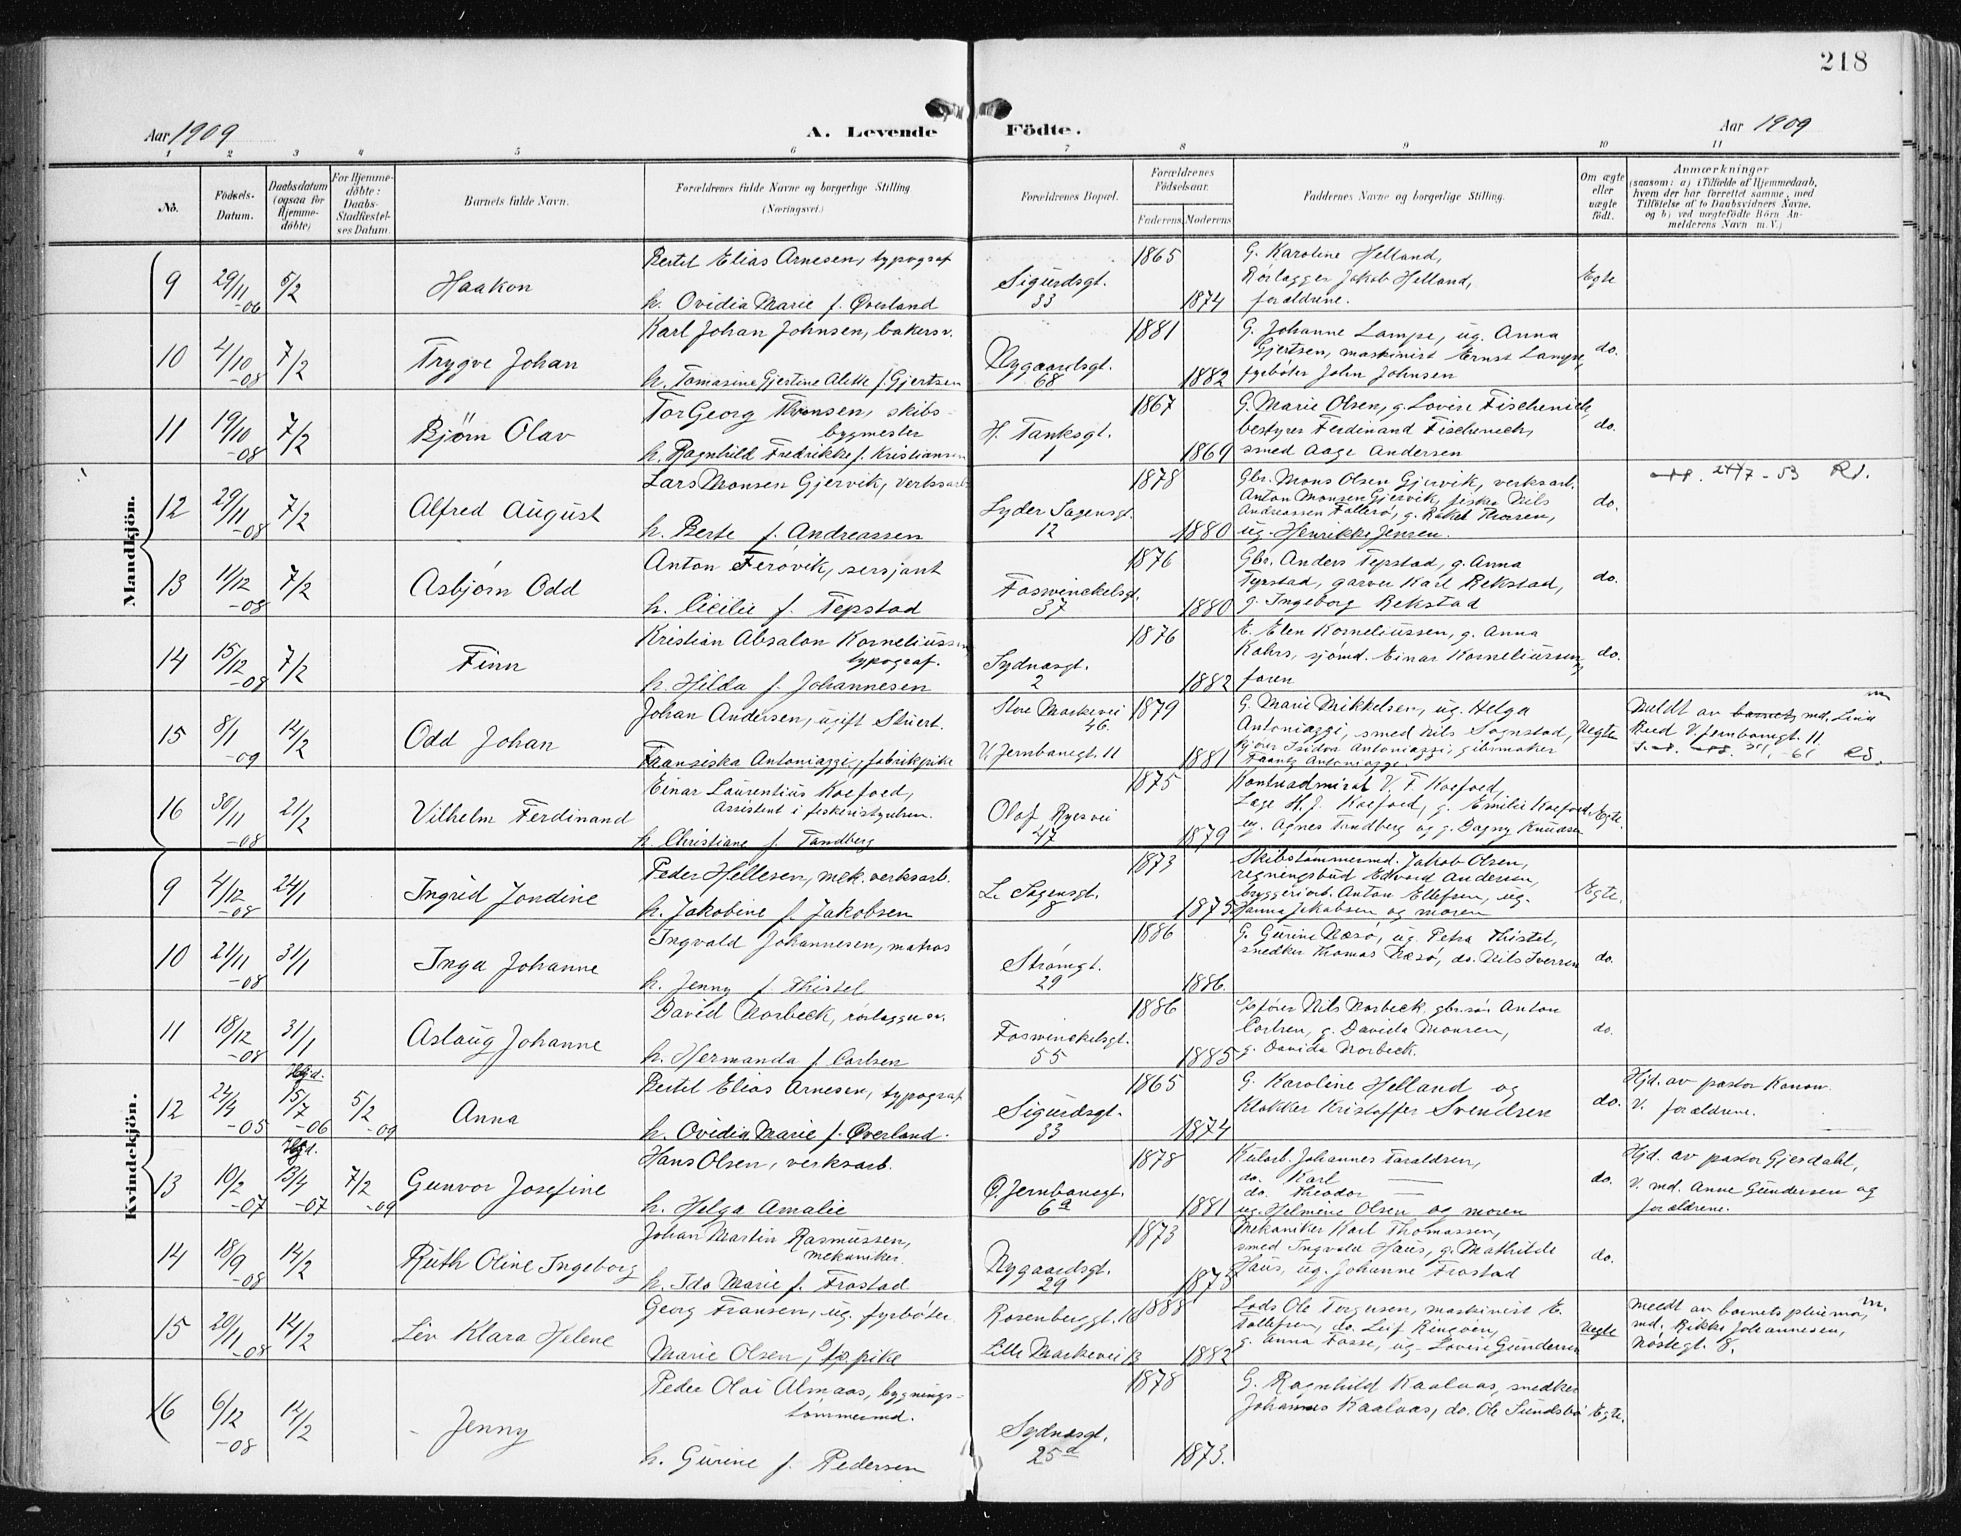 218
Aar 1909
A. Levende Födte.
Aar 1909
1 2 3 4 5 6 7 8 9 10 11
No.
Födsels-Datum.
Daabsdatum (ogsaa for Hjemme-döbte)
For Hjemme-döbte: Daabs-Stadfæstel-ses Datum.
Barnets fulde Navn.
Forældrenes fulde Navne og borgerlige Stilling
(Næringsvei.)
Forældrenes Bopæl.
Forældrenes Födselsaar.
Faderens. Moderens.
Faddernes Navne og borgerlige Stilling.
Om ægte eller uægte födt.
Anmærkninger
(saasom: a) i Tilfælde af Hjemmedaab, hvem der har forrettet samme, med Tilföielse af to Daabsvidners Navne, og b) ved uægtefödte Börn Anmelderens Navn m.V.)
Mandkjön.
9 29/11 -06 5/2 Haakon
Bertel Elias Arnesen, typograf
h. Ovidia Marie f. Øverland
Sigurdsgt. 33
1865 1874
G. Karoline Helland,
Rörlægger Jakob Helland,
forældrene.
Egte
10 4/10 -08 7/2 Trygve Johan
Karl Johan Johnsen, bakersv.
h. Tomasine Gjertine Alette f. Gjertsen
Nygaardsgt. 68
1881 1882
G. Johanne Lampe, ug. Anna
Gjertsen, maskinist Ernst Lampe,
fyrbøter John Johnsen
do.
11 19/10 -08 7/2 Bjørn Olav
Tor Georg Thomsen, skibs-
bygmester
h. Ragnhild Fredrikke f. Kristiansen
H. Tanksgt. 1
1867 1869
G. Marie Olsen, g. Lovise Fischenich,
bestyrer Ferdinand Fischenich,
smed Aage Andersen
do.
12 29/11 -08 7/2 Alfred August
Lars Monsen Gjervik, verksarb.
h. Berte f. Andreassen
Lyder Sagensgt. 12
1878 1880
Gbr. Mons Olsen Gjervik, verksarb.
Anton Monsen Gjervik, fisker Nils
Andreassen Follesø, g. Rakel Thorsen,
ug. Henrikke Jensen.
do.
-53
13 11/12 -08 7/2 Asbjørn Odd
Anton Ferøvik, sersjant
h. Cicilie f. Tepstad
Fosswinckelsgt. 37
1876 1880
Gbr. Anders Tepstad, g. Anna
Tepstad, garver Karl Rekstad,
g. Ingeborg Rekstad
do.
14 15/12 -08 7/2 Finn
Kristian Absalon Korneliussen,
typograf.
h. Hilda f. Johannesen
Sydnæsgt. 2
1876 1882
E. Elen Korneliussen, g. Anna
Kahrs, sjömd. Einar Korneliussen,
faren
do.
15 8/1 -09 14/2 Odd Johan
Johan Andersen, ugift Stuert.
Fransiska Antoniazzi, fabrikpike
Store Markevei 46.
V. Jernbanegt. 11
1879 1881
G. Marie Mikkelsen, ug. Helga
Antoniazzi, smed Nils Sognstad,
Isidor Antoniazzi, gibsmaker
Frantz Antoniazzi.
Uegte
Meldt av barnets md. Lina
Rud V. Jernbanegt. 11.
-61
16 30/11 -08 21/2 Vilhelm Ferdinand
Einar Laurentius Koefoed,
Assistent i fiskeristyrelsen.
h. Christiane f. Tandberg
Olaf Ryesvei 47
1875 1879
Kontreadmiral V. F. Koefoed,
Læge H. J. Koefoed, g. Emilie Koefoed,
ug. Agnes Tandberg og g. Dagny Knudsen
Egte.
Kvindekjön.
9 4/12 -08 24/1 Ingrid Jondine
Peder Hellesen, mek. verksarb.
h. Jakobine f. Jakobsen
L. Sagensgt. 8
1873 1875
Skibstømmermd. Jakob Olsen,
regningsbud Edvard Andersen,
byggeriarb. Anton Ellefsen, ug.
Hanna Jakobsen og moren
Egte.
10 21/11 -08 31/1 Inga Johanne
Ingvald Johannesen, matros
h. Jenny f. Thistel
Strömgt. 29
1886 1886.
G. Gurine Næsø, ug. Petra Thistel,
snedker Thomas Næsø, do. Nils Iversen
do.
11 18/12 -08 31/1 Aslaug Johanne
David Norbeck, rörlægger sv.
h. Hermanda f. Carlsen
Fosswinckelsgt. 55
1886 1885
Nils Norbeck, gbr.sön Anton
Carlsen, g. Davida Monsen,
g. Davida Norbeck.
do.
12 24/4 -05 Hjd. 15/7 -06 5/2 -09 Anna
Bertel Elias Arnesen, typograf
h. Ovidia Marie f. Øverland.
Sigurdsgt. 33
1865 1874
G. Karoline Helland og
Klokker Kristoffer Svendsen
do.
Hjd. av pastor Kanow.
V. forældrene.
13 10/2 -07 Hjd. 13/4 -07 7/2 -09 Gunvor Josefine
Hans Olsen, verksarb.
h. Helga Amalie
Ø. Jernbanegt. 6a
1878 1881
Kularb. Johannes Taraldsen,
do. Karl —
do. Theodor —
ug. Helmine Olsen og moren
do.
Hjd. av pastor Gjesdahl,
V. md. Anne Gundersen og
forældrene.
14 18/9 -08 14/2 Ruth Oline Ingeborg
Johan Martin Rasmussen,
mekaniker.
h. Ida Marie f. Frostad
Nygaardsgt. 29
1873 1875
Mekaniker Karl Thomassen,
smed Ingvald Haus, g. Mathilde
Haus, ug. Johanne Frostad
do.
15 20/11 -08 14/2 Liv Klara Helene
Georg Fransen, ug. fyrbøter
Marie Olsen, pike
Rosenberggt. 16
Lille Markevei 13
1888 1882
Lods Ole Torgersen, maskinist E.
Tollefsen, do. Leif Ringøen,
g. Anna Fosse, ug. Lovise Gundersen
Uegte
meldt av barnets pleiemor,
md. Rikke Johannesen,
Nøstegt. 8.
16 6/12 -08 14/2 Jenny
Peder Olai Almaas, bygnings-
tømmermd.
h. Gurine f. Pedersen
Sydnæsgt. 25d
1878 1873.
G. Ragnhild Kaalaas, snedker
Johannes Kaalaas, do. Ole Sundsbø
Egte.